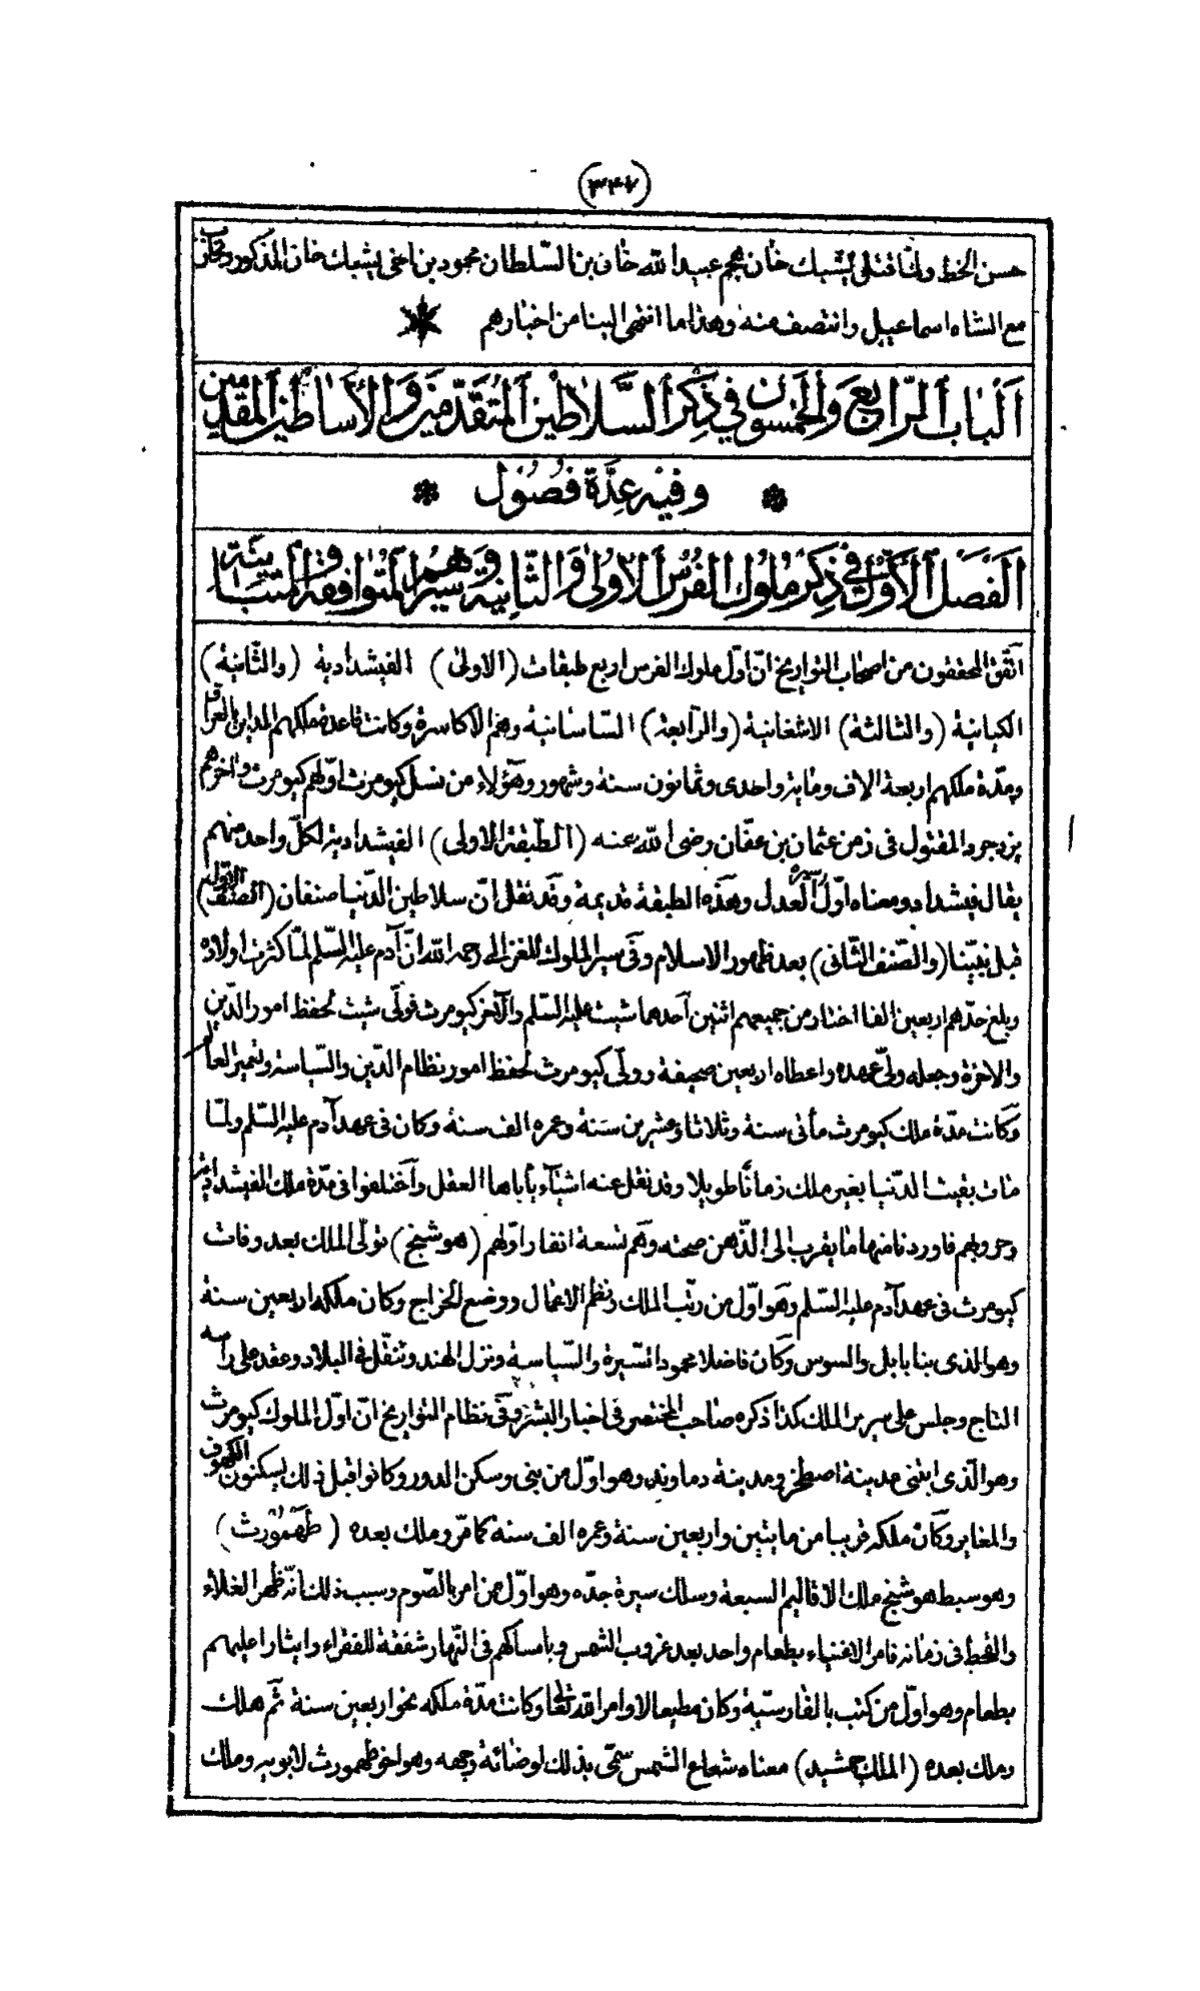 (٣٤٧)
حسن الخط ولما قتل يشبك خان هجم عبيد الله خان بن السلطان محمود بن اخي يشبك خان المذكور وتحارب
مع الشاه اسماعيل وانتصف منه وهذا ما انتهى الينا من اخبارهم
اَلْبَابُ الرَّابِعُ وَالْخَمْسُونَ فِي ذِكْرِ السَّلَاطِينِ الْمُتَقَدِّمِينَ وَالْأَسَاطِينِ الْمُقَدَّمِينَ
وَفِيهِ عِدَّةُ فُصُولٍ
اَلْفَصْلُ الْأَوَّلُ فِي ذِكْرِ مُلُوكِ الْفُرْسِ الْأُولَىٰ وَالثَّانِيَةِ وَسِيَرِهِمُ الْمُتَوَافِقَةِ وَالْمُتَبَايِنَةِ
اتّفق المحققون من اصحاب التواريخ انّ اوّل ملوك الفرس اربع طبقات (الاولى) الفيشدادية (والثّانية)
الكيانية (والثالثة) الاشغانية (والرّابعة) السّاسانية وهم الاكاسرة وكانت قاعدة ملكهم المداين بالعراق
ومدّة ملكهم اربعة الاف وماية واحدى وثمانون سنة وشهور وهؤلاء من نسل كيومرث اوّلهم كيومرث واخرهم
يزدجرد المقتول فى زمن عثمان بن عفّان رضى الله عنه (الطّبقة الاولى) الفيشدادية لكلّ واحد منهم
يقال فيشداد ومعناه اوّل سيرة العدل وهذه الطبقة قديمة وقد نقل انّ سلاطين الدّنيا صنفان (الصّنف الاوّل)
قبل نبيّنا (والصّنف الثّانى) بعد ظهور الاسلام وفى سير الملوك للغزالى رحمه الله انّ آدم عليه السّلم لمّا كثرت اولاده
وبلغ حدّهم اربعين الفا اختار من جميعهم اثنين احدهما شيث عليه السّلم والآخر كيومرث فولّى شيث لحفظ امور الدّين
والاخرة وجعله ولىّ عهده واعطاه اربعين صحيفة وولّى كيومرث لحفظ امور نظام الدّين والسّياسة وتعمير العالم
وكانت مدّة ملك كيومرث مأتى سنة وثلاثا وعشرين سنة وعمره الف سنة وكان فى عهد آدم عليه السّلم ولمّا
مات بقيت الدّنيا بغير ملك زمانًا طويلا وقد نقل عنه اشيآء يأباها العقل واختلفوا فى مدّة ملك الفيشدادية
وحروبهم فاوردنا منها ما يقرب الى الذّهن صحته وهم تسعة انفار اوّلهم (هوشنج) تولّى الملك بعد وفات
كيومرث فى عهد آدم عليه السّلم وهو اوّل من رتّب الملك ونظم الاعمال ووضع الخراج وكان ملكه اربعين سنة
وهو الذى بنا بابل والسوس وكان فاضلا محمود السّيرة والسّياسية ونزل الهند وتنقّل فى البلاد وعقد على رأسه
التاج وجلس على سرير الملك كذا ذكره صاحب المختصر فى اخبار البشر وفى نظام التواريخ انّ اوّل الملوك كيومرث
وهو الّذى ابتنى مدينة اصطخر ومدينة دماوند وهو اوّل من بنى وسكن الدور وكانوا قبل ذلك يسكنون الكهوف
والمغاير وكان ملكه قريبا من مايتين واربعين سنة وعمره الف سنة كما مرّ وملك بعده (طَهمُورث)
وهو سبط هوشنج ملك الاقاليم السبعة وسلك سيرة جدّه وهو اوّل من امر بالصّوم وسبب ذلك انّه ظهر الغلاء
والقحط فى زمانه فامر الاغنياء بطعام واحد بعد غروب الشمس وبامساكهم فى النّهار شفقة للفقراء وايثارا عليهم
بطعام وهو اوّل من كتب بالفارسيّة وكان مطيعا لاوامر الله تعالى وكانت مدّة ملكه نحو اربعين سنة ثم هلك
وملك بعده (الملك جمشيد) معناه شعاع الشمس سمّى بذلك لوضائة وجهه وهو اخو طهمورث لابويه وملك